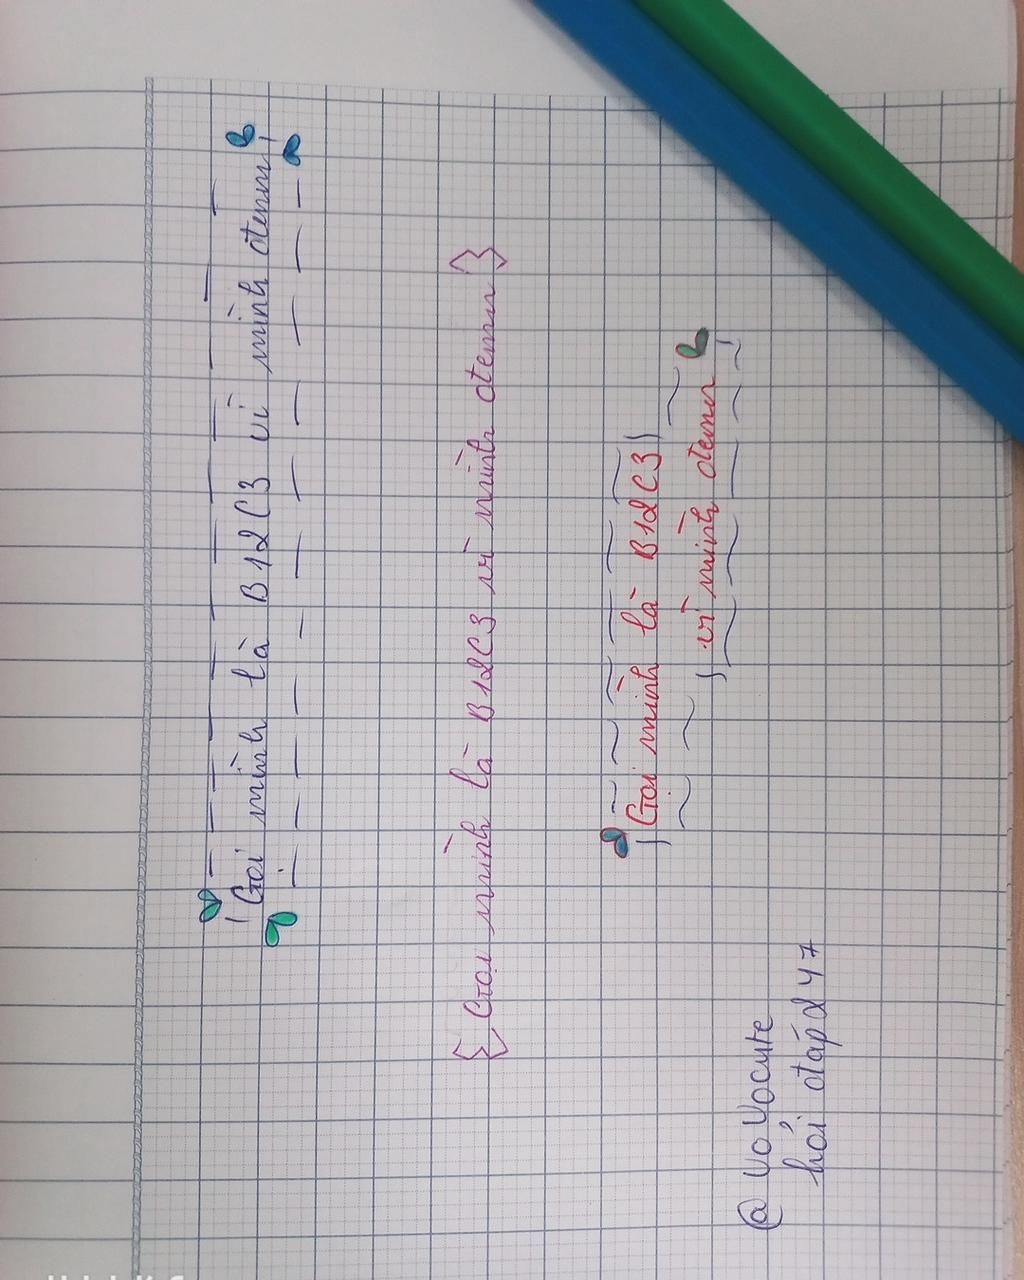 Gọi mình là B12C3 vì mình đenn
{Gọi mình là B12C3 vì mình đenn}
Gọi mình là B12C3
vì mình đenn
@ vovocute
hỏi đáp 247